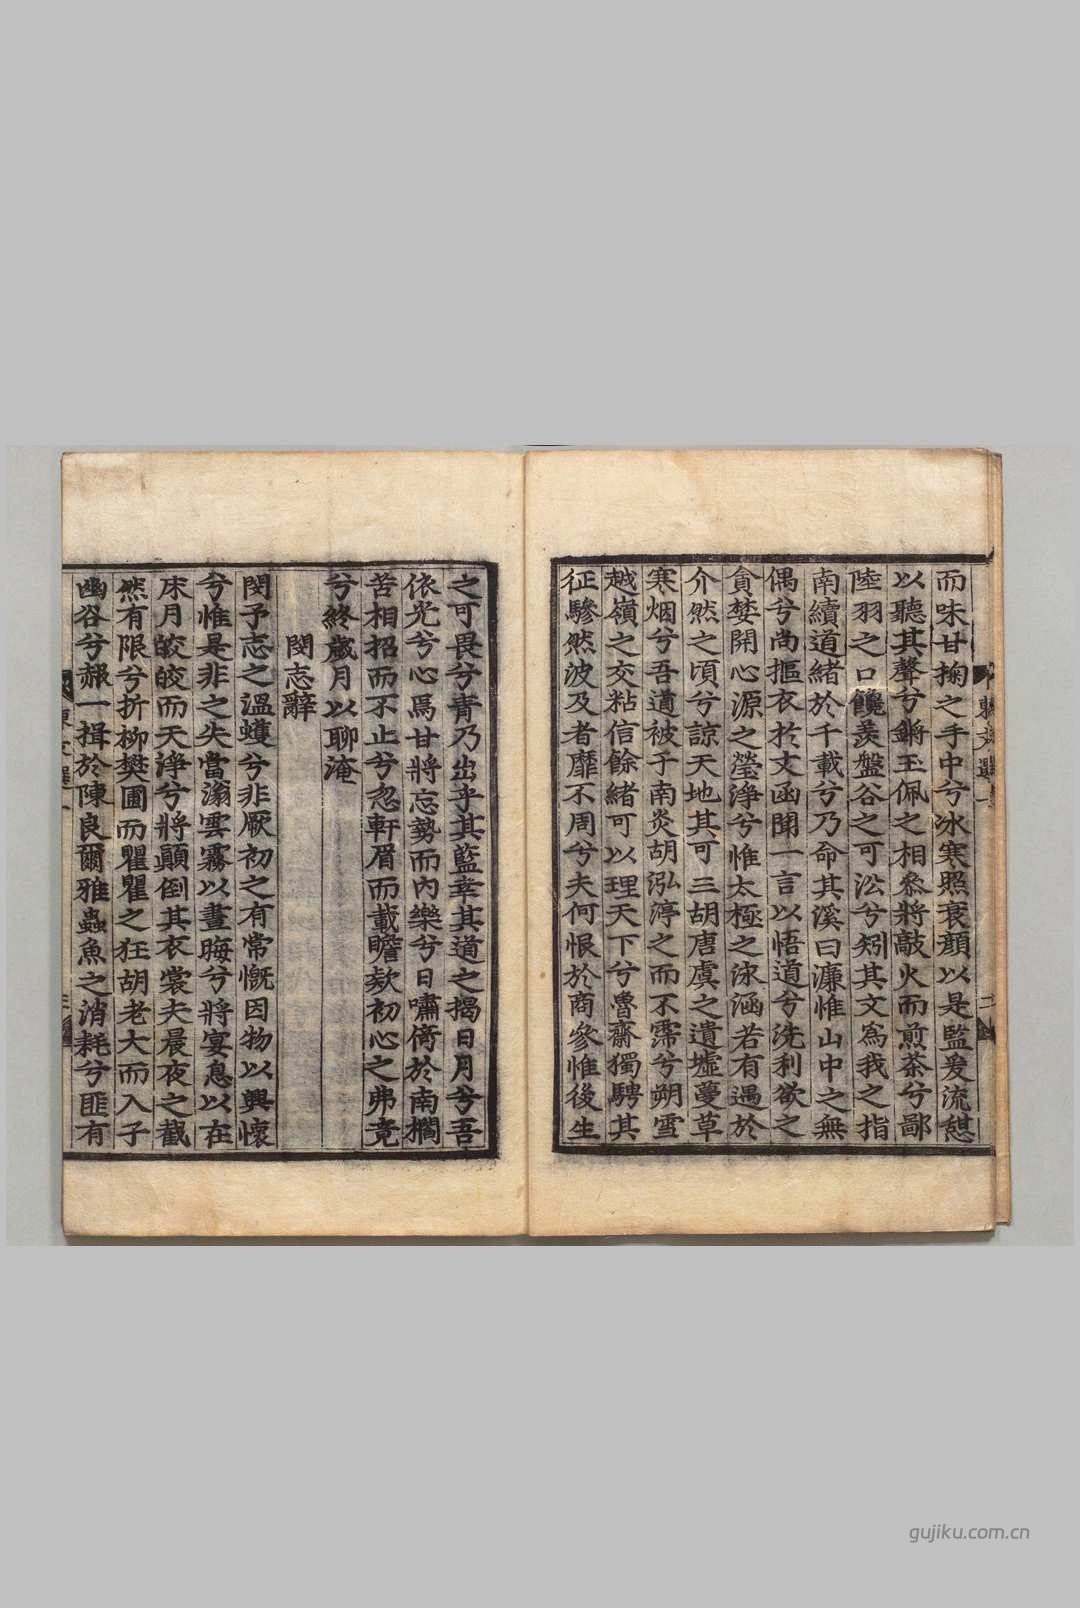 而味甘掬之手中兮冰寒照衰顔以是監爰流憇
以聽其聲兮鏘玉佩之相叅將敲火而煎茶兮鄙
陸羽之口饞羨盤谷之可㳂兮矧其文爲我之指
南續道緖於千載兮乃命其溪曰濂惟山中之無
偶兮尚摳衣扵文函聞一言以悟道兮洗利欲之
貪婪開心源之瑩淨兮惟太極之泳涵若有遇於
介然之頃兮諒天地其可三胡唐虞之遺墟蔓草
寒烟兮吾道被于南炎胡泓渟之而不霈兮朔雪
越嶺之交粘信餘緖可以理天下兮魯齋獨騁其
征驂然波及者靡不周兮夫何恨於商參惟後生
東文選一
二
之可畏兮靑乃出乎其藍幸其道之揭日月兮吾
依光兮心焉甘將忘勢而內樂兮日嘯傲於南榈
苦相招而不止兮忽軒眉而載瞻欸初心之弗竟
兮終歲月以聊淹
閔志辭
閔予志之溫蠖兮非厥初之有常慨因物以興懷
兮惟是非之失當滃雲霧以晝晦兮將宴息以在
床月皎皎而天淨兮將顛倒其衣裳夫晨夜之截
然有限兮折柳樊圃而瞿瞿之狂胡老大而入子
幽谷兮郝一揖於陳良爾雅蟲魚之消耗兮匪有
東文選一
三
gujiku.com.cn